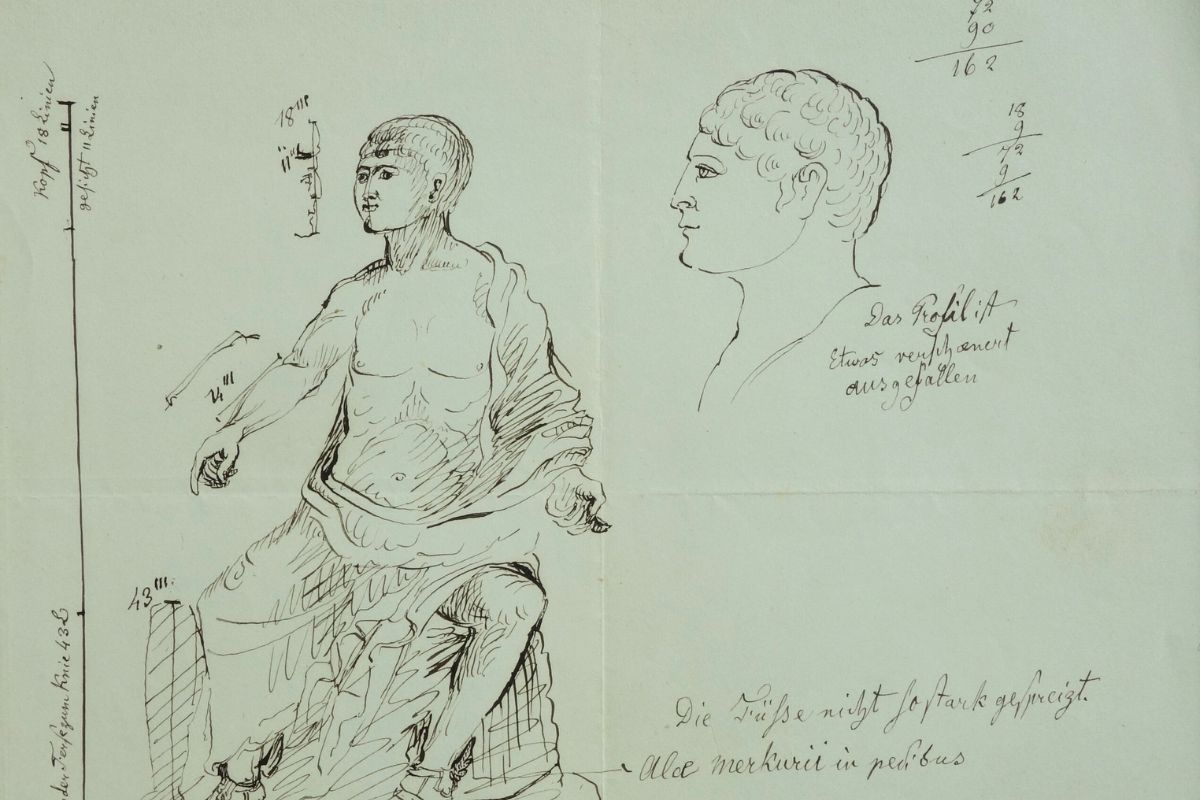 Kopf 18 Linien
gesicht 11 Linien
18'''
11'''
43'''
zum Knie 43 L
72
90
162
18
9
72
9
162
Das Profil ist
Etwas verschœnert
ausgefallen
Die Füsse nicht so stark gespreizt.
Alæ merkurii in pedibus